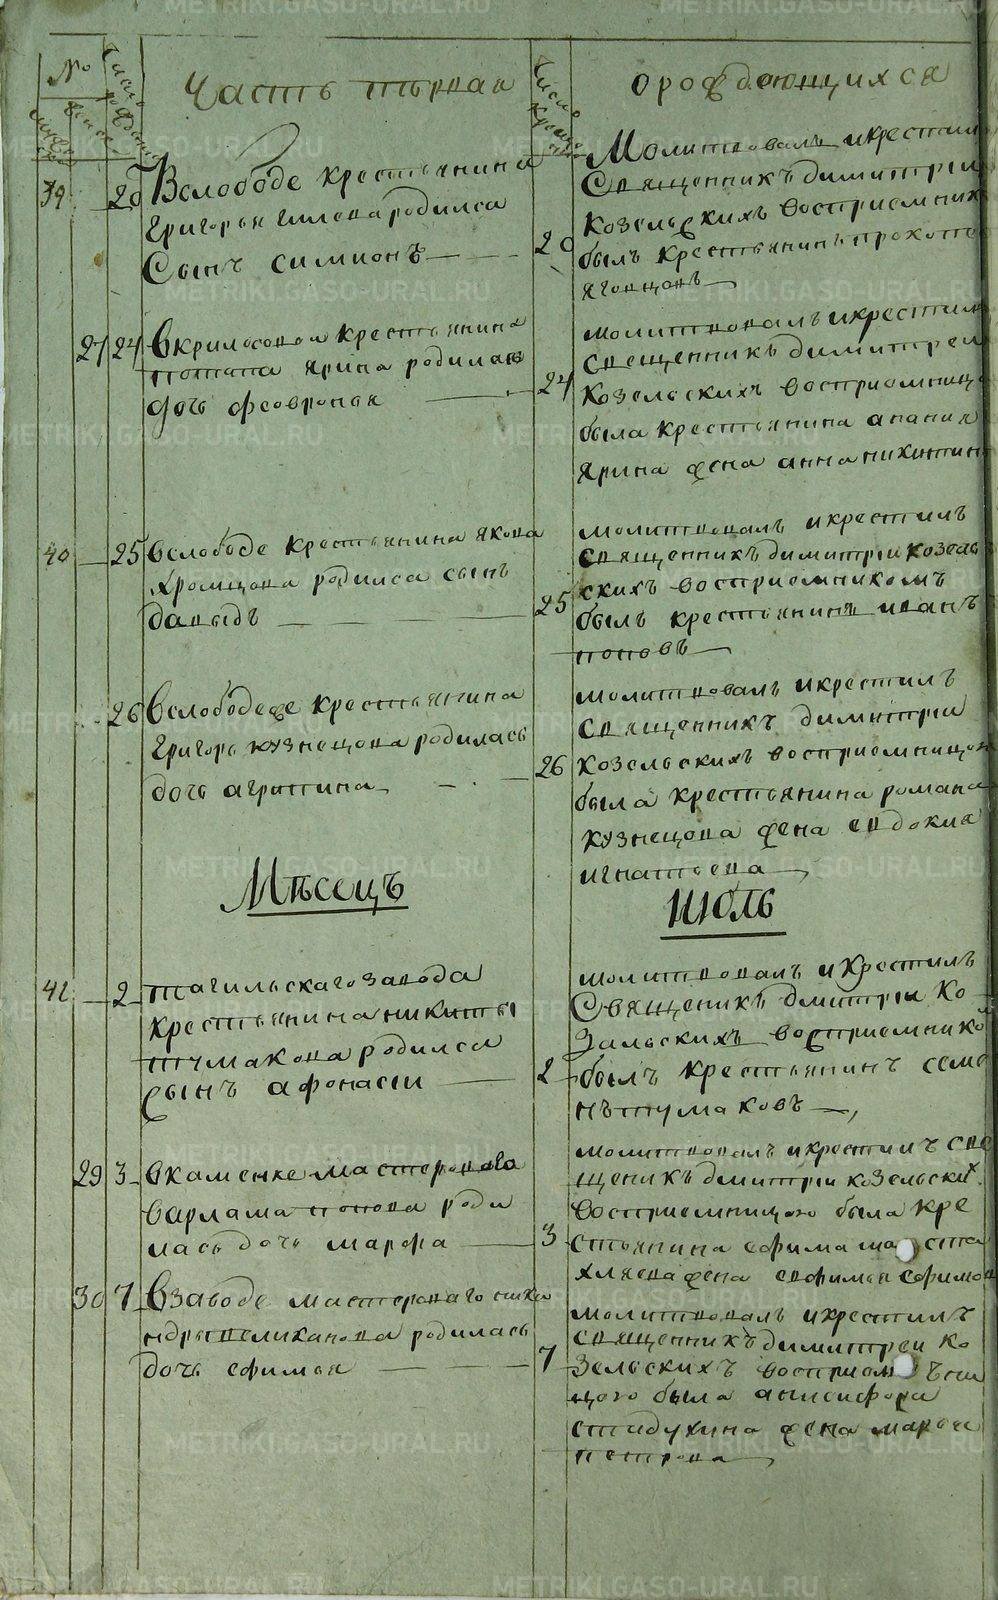 №
Число рождения
мужеска
женска
Часть первая
Число крещения
о рождающихся
39
20
Вслободе крестьянина
григорья гилева родился
Сынъ симионъ
20
Молитвовалъ икрестилъ
Священникъ димитрии
козельскихъ восприемник
былъ крестьянинъ прокопе
яговцовъ
27
24
вкрилосовои крестьянина
потапа ярина родилась
дочь февронья
24
молитвовалъ икрестилъ
священникъ димитреи
козельскихъ восприемницо
была крестьянина анания
ярина жена анна никитин
40
25
вслободе крестьянина якова
хромцова родился сынъ
давыдъ
25
молитвовалъ икрестилъ
священникъ димитрии козель
скихъ восприемникомъ
былъ крестьянинъ иванъ
поповъ
26
вслободеже крестьянина
григорья кузнецова родилась
дочь агрипина
26
молитвовалъ икрестилъ
священникъ димитрии
козельскихъ восприемницою
была крестьянина романа
кузнецова жена евдокия
игнатьева
Мѣсецъ
Июль
41
2
тагильскаго завода
крестьянина никиты
тумакова родился
сынъ афонасии
2
молитвовалъ икрестилъ
Священикъ дмитрии ко
зальскихъ восприемнико
былъ крестьянинъ семе
нъ тумаковъ
29
3
вкаменке мастероваго
варлама попова роди
лась дочь марфа
3
молитвовалъ икрестилъ све
щеникъ дмитрии козельских
восприемницою была кре
стьянина ефима
хляева жена евфимья ефимов
30
7
взаводе мастероваго
великанова родилась
дочь ефимья
7
молитвовалъ икрестилъ
священникъ димитреи ко
зельскихъ восприем
цою была анисифора
стадухина жена марья
петрова
METRIKI.GASO-URAL.RU